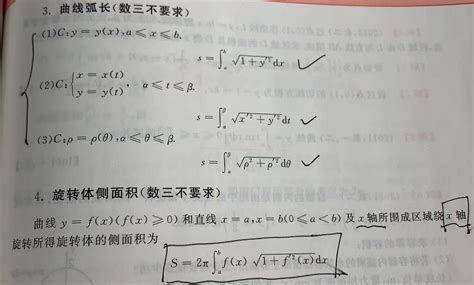 3. 曲线弧长(数三不要求)
(1)C:y = y(x), a ⩽ x ⩽ b.
s = ∫_a^b √(1 + y′²) dx
(2)C:{x = x(t), y = y(t), α ⩽ t ⩽ β.
s = ∫_α^β √(x′² + y′²) dt
(3)C:ρ = ρ(θ), α ⩽ θ ⩽ β.
s = ∫_α^β √(ρ² + ρ′²) dθ
4. 旋转体侧面积(数三不要求)
曲线 y = f(x)(f(x) ⩾ 0) 和直线 x = a, x = b(0 ⩽ a < b) 及 x 轴所围成区域绕 x 轴
旋转所得旋转体的侧面积为
S = 2π∫_a^b f(x) √(1 + f′²(x)) dx